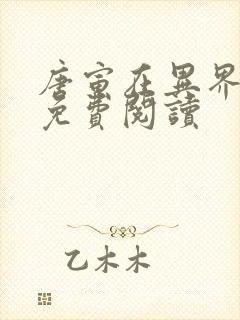 唐寅在異界
免費閱讀
乙木木